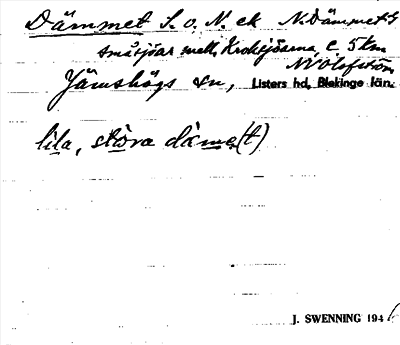 Dämmet S. o. N. ek N. Dämmet 4
småsjöar mell. Kroksjöarna, c. 5 km
NV Olofström
Jämshögs sn, Listers hd, Blekinge län.
lila, störa däme(t)
J. SWENNING 1946